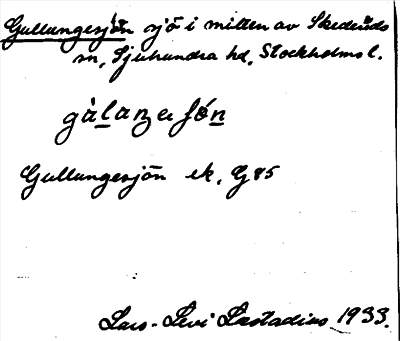 Gullungesjön sjö i mitten av Skederids
sn, Sjuhundra hd, Stockholms l.
gàlaŋeʃón
Gullungesjön ek, G 85
Lars-Levi Læstadius 1933.